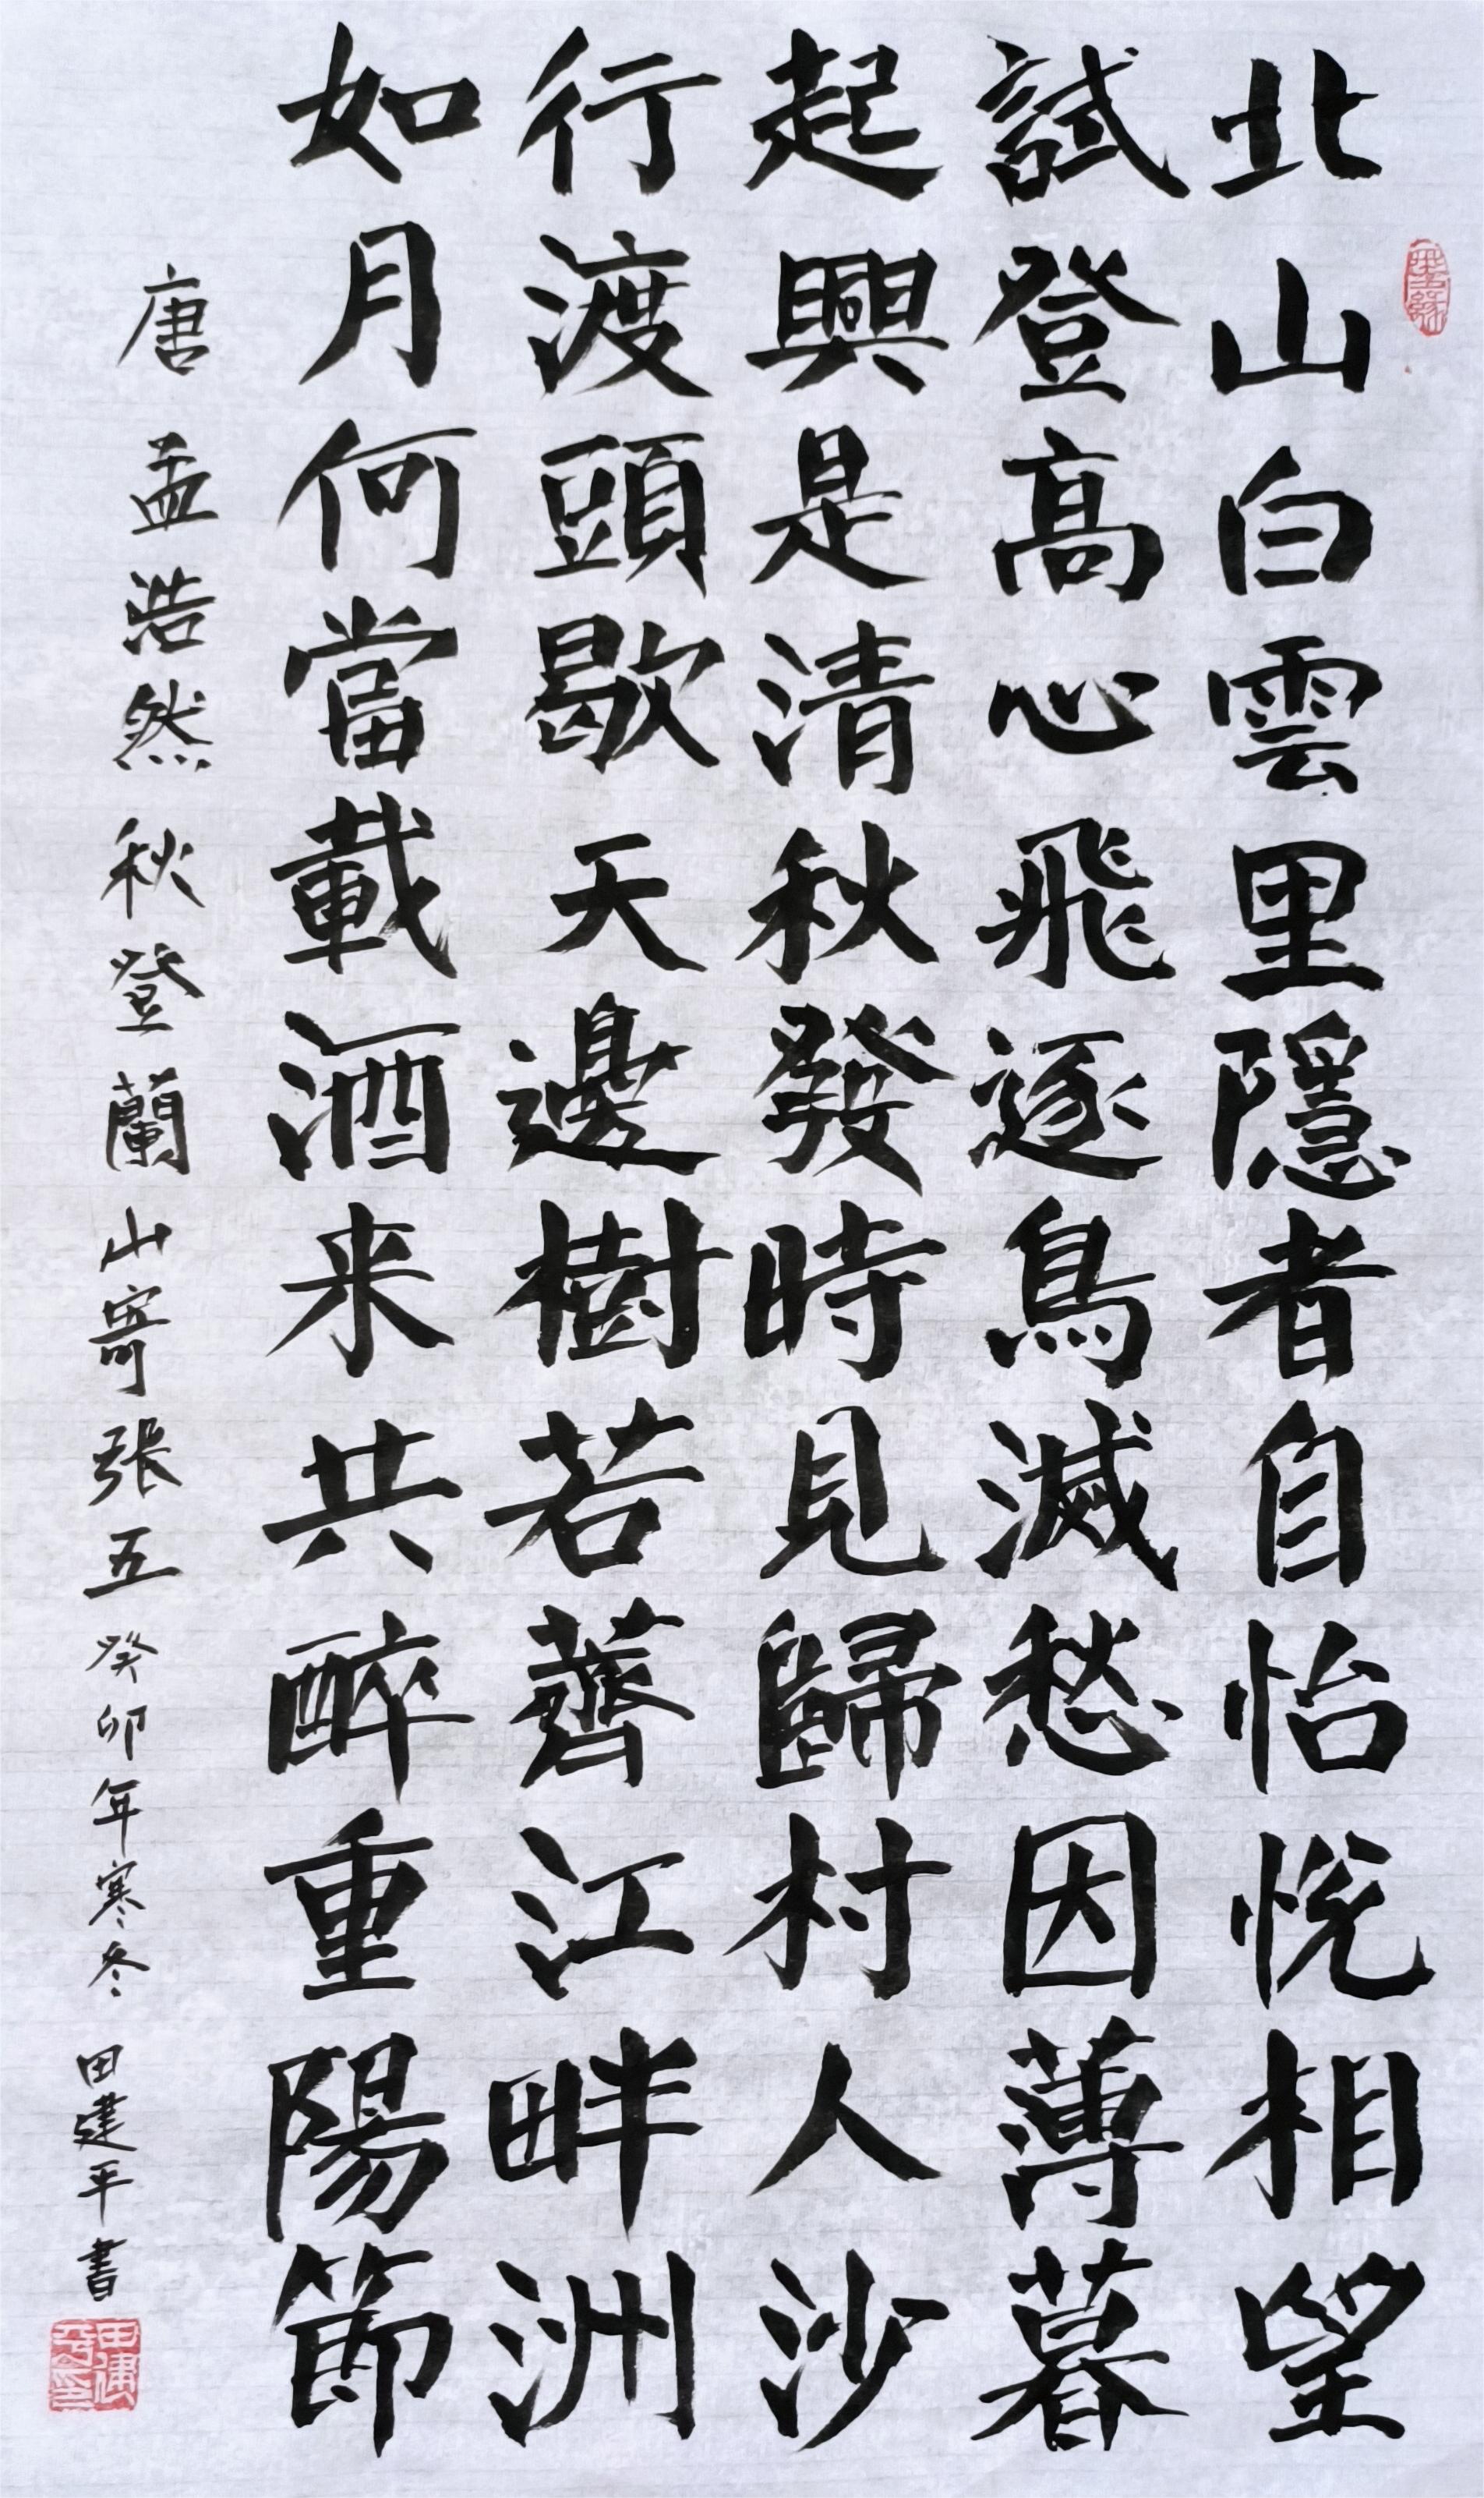 北山白雲里隱者自怡悅相望
試登高心飛逐鳥滅愁因薄暮
起興是清秋發時見歸村人沙
行渡頭歇天邊樹若薺江畔洲
如月何當載酒来共醉重陽節
唐孟浩然秋登蘭山寄張五癸卯年寒冬田建平書